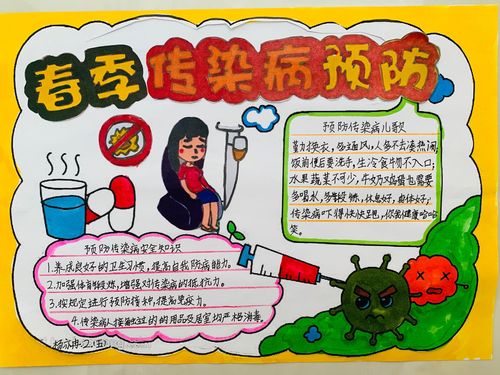 春季传染病预防
预防传染病儿歌
勤换衣,多通风,人多不去凑热闹,
饭前便后要洗手,生冷食物不入口,
水果蔬菜不可少,牛奶鸡蛋也需要
多喝水,多锻炼,休息好,身体好,
传染病吓得快快跑,你我健康哈哈
笑。
预防传染病安全知识
1.养成良好的卫生习惯,提高自我防病能力。
2.加强体育锻炼,增强对传染病的抵抗力。
3.按规定进行预防接种,提高免疫力。
4.传染病人接触过的的用品及居室均严格消毒。
二(五)